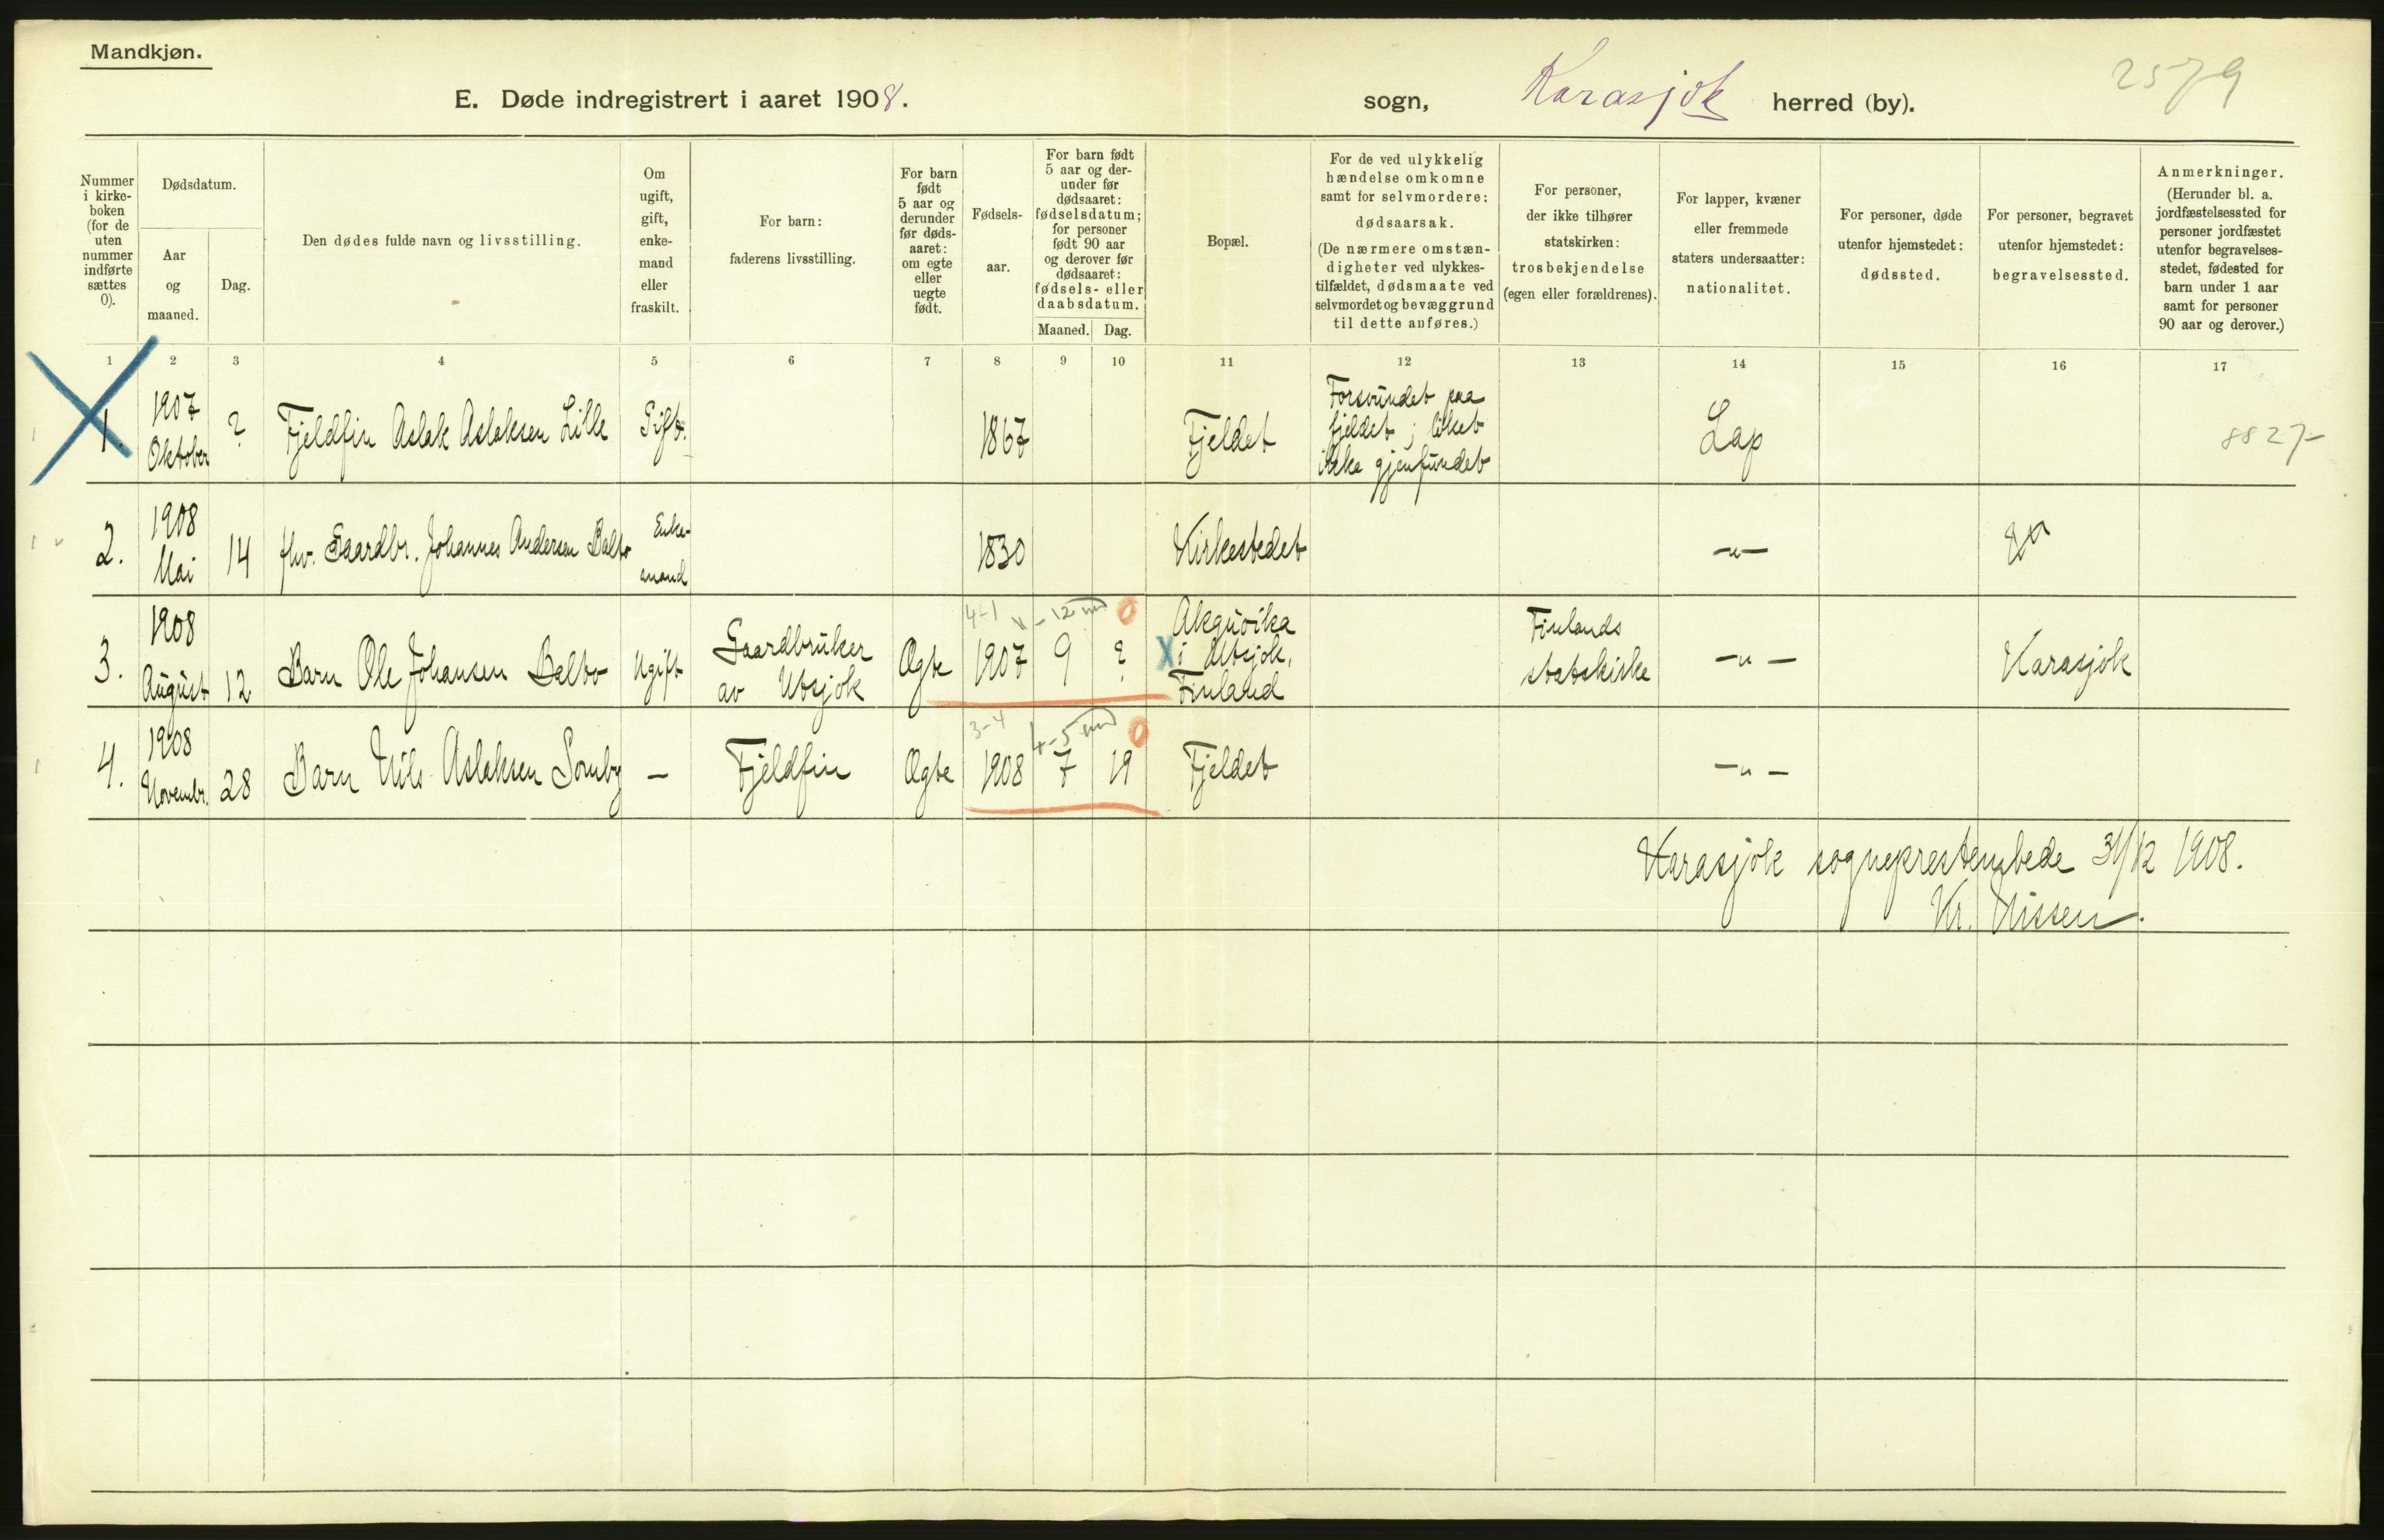 Mandkjøn.
E. Døde indregistrert i aaret 1908.
sogn, Karasjok herred (by).
2579
Nummer i kirke-boken (for de uten nummer indførte sættes 0).
Dødsdatum.
Aar og maaned.
Dag.
Den dødes fulde navn og livsstilling.
Om ugift, gift, enke-mand eller fraskilt.
For barn: faderens livsstilling.
For barn født 5 aar og derunder før døds-aaret: om egte eller uegte født.
Fødsels-aar.
For barn født 5 aar og der-under før dødsaaret: fødselsdatum; for personer født 90 aar og derover før dødsaaret: fødsels- eller daabsdatum.
Maaned.
Dag.
Bopæl.
For de ved ulykkelig hændelse omkomne samt for selvmordere: dødsaarsak.
(De nærmere omstæn-digheter ved ulykkes-tilfældet, dødsmaate ved selvmordet og bevæggrund til dette anføres.)
For personer, der ikke tilhører statskirken: trosbekjendelse (egen eller forældrenes).
For lapper, kvæner eller fremmede staters undersaatter: nationalitet.
For personer, døde utenfor hjemstedet: dødssted.
For personer, begravet utenfor hjemstedet: begravelsessted.
Anmerkninger.
(Herunder bl. a. jordfæstelsessted for personer jordfæstet utenfor begravelses-stedet, fødested for barn under 1 aar samt for personer 90 aar og derover.)
1 2 3 4 5 6 7 8 9 10 11 12 13 14 15 16 17
1. 1907 Oktober ? Fjeldfin Aslak Aslaksen Lille Gift. 1867 Fjeldet Forsvundet paa fjeldet; liket ikke gjenfundet Lap 8827
2. 1908 Mai 14 fhv. Gaardbr. Johannes Andersen Balto Enke-mand 1830 Kirkestedet -"-
4-1 12 md 0
3. 1908 August 12 Barn Ole Johansen Balto Ugift Gaardbruker av Utsjok Ægte 1907 9 ? X i Utsjok, Finland Finlands statskirke -"- Karasjok
3-4 4-5 md 0
4. 1908 Novembr. 28 Barn Nils Aslaksen Somby - Fjeldfin Ægte 1908 7 19 Fjeldet -"-
Karasjok sogneprestembede 31/12 1908.
Kr. Nissen.